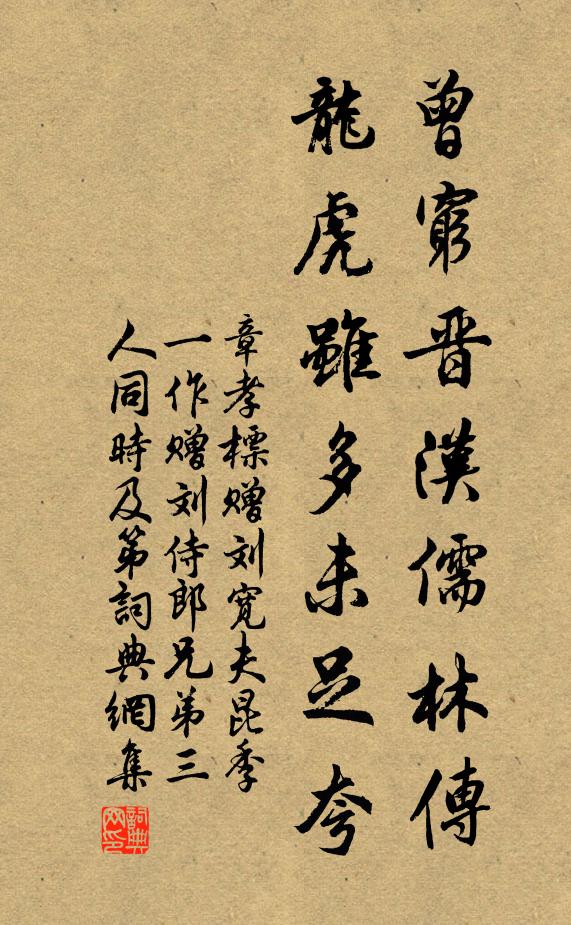 曾窮晋漢儒林傳
龍虎雖多未足夸
章孝標贈刘寬夫昆季
一作赠刘侍郎兄弟三
人同時及第詞典網集
詞典网印